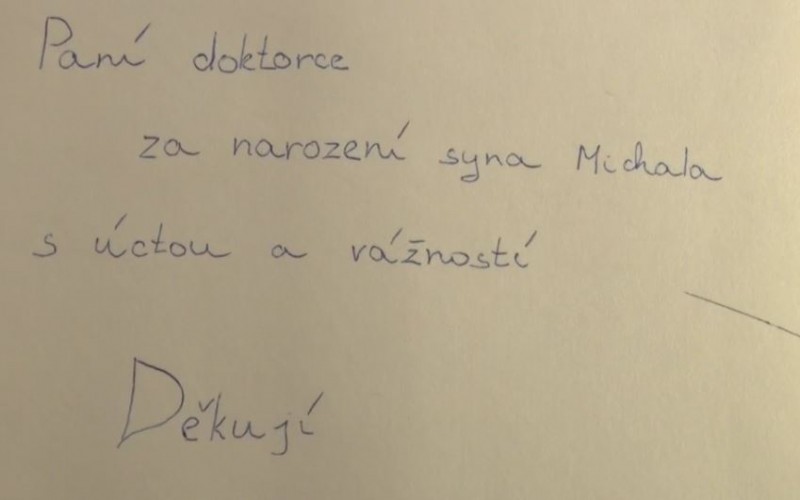 Paní doktorce
za narození syna Michala
s úctou a vážností
Děkují